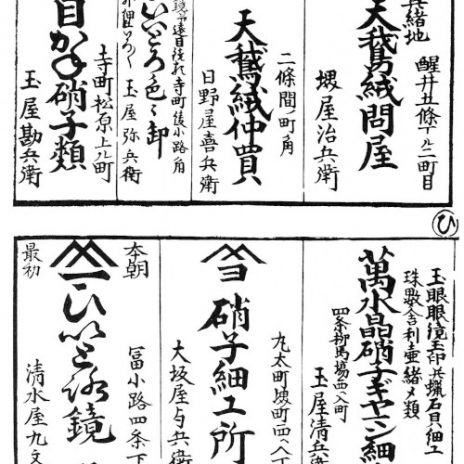 兵緒地
醒井五條下ル二町目
天鵞絨問屋
堺屋治兵衛
二條間ノ町角
天鵞絨仲買
日野屋喜兵衛
寺町後小路角
いとろ色々卸
玉屋弥兵衛
目がね硝子類
寺町松原上ル町
玉屋勘兵衛
ひ
玉眼眼鏡玉印兵蝋石貝細工
珠数舎利壷緒〆類
萬水晶硝子ギヤマン細
四条柳馬場西入町
玉屋清兵
ヨ
硝子細工所
九太町堺町西へ入丁
大坂屋与兵衛
本朝
一ひいとろ鏡
最初
冨小路四条下
清水屋九文